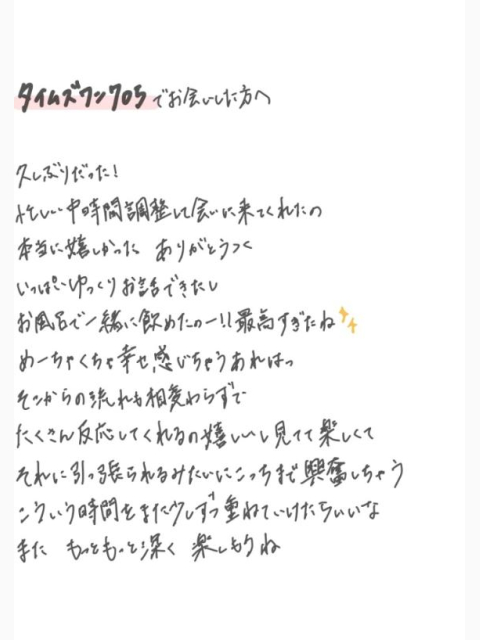 タイムズワン705でお会いした方へ
久しぶりだった!
忙しい中時間調整して会いに来てくれたの
本当に嬉しかった ありがとうっ
いっぱいゆっくりお話できたし
お風呂で一緒に飲めたのー!!最高すぎたね
めーちゃくちゃ幸せ感じちゃうあれはっ
そこからの流れも相変わらずで
たくさん反応してくれるの嬉しいし見てて楽しくて
それに引っ張られるみたいにこっちまで興奮しちゃう
こういう時間をまた少しずつ重ねていけたらいいな
また もっともっと深く 楽しもうね